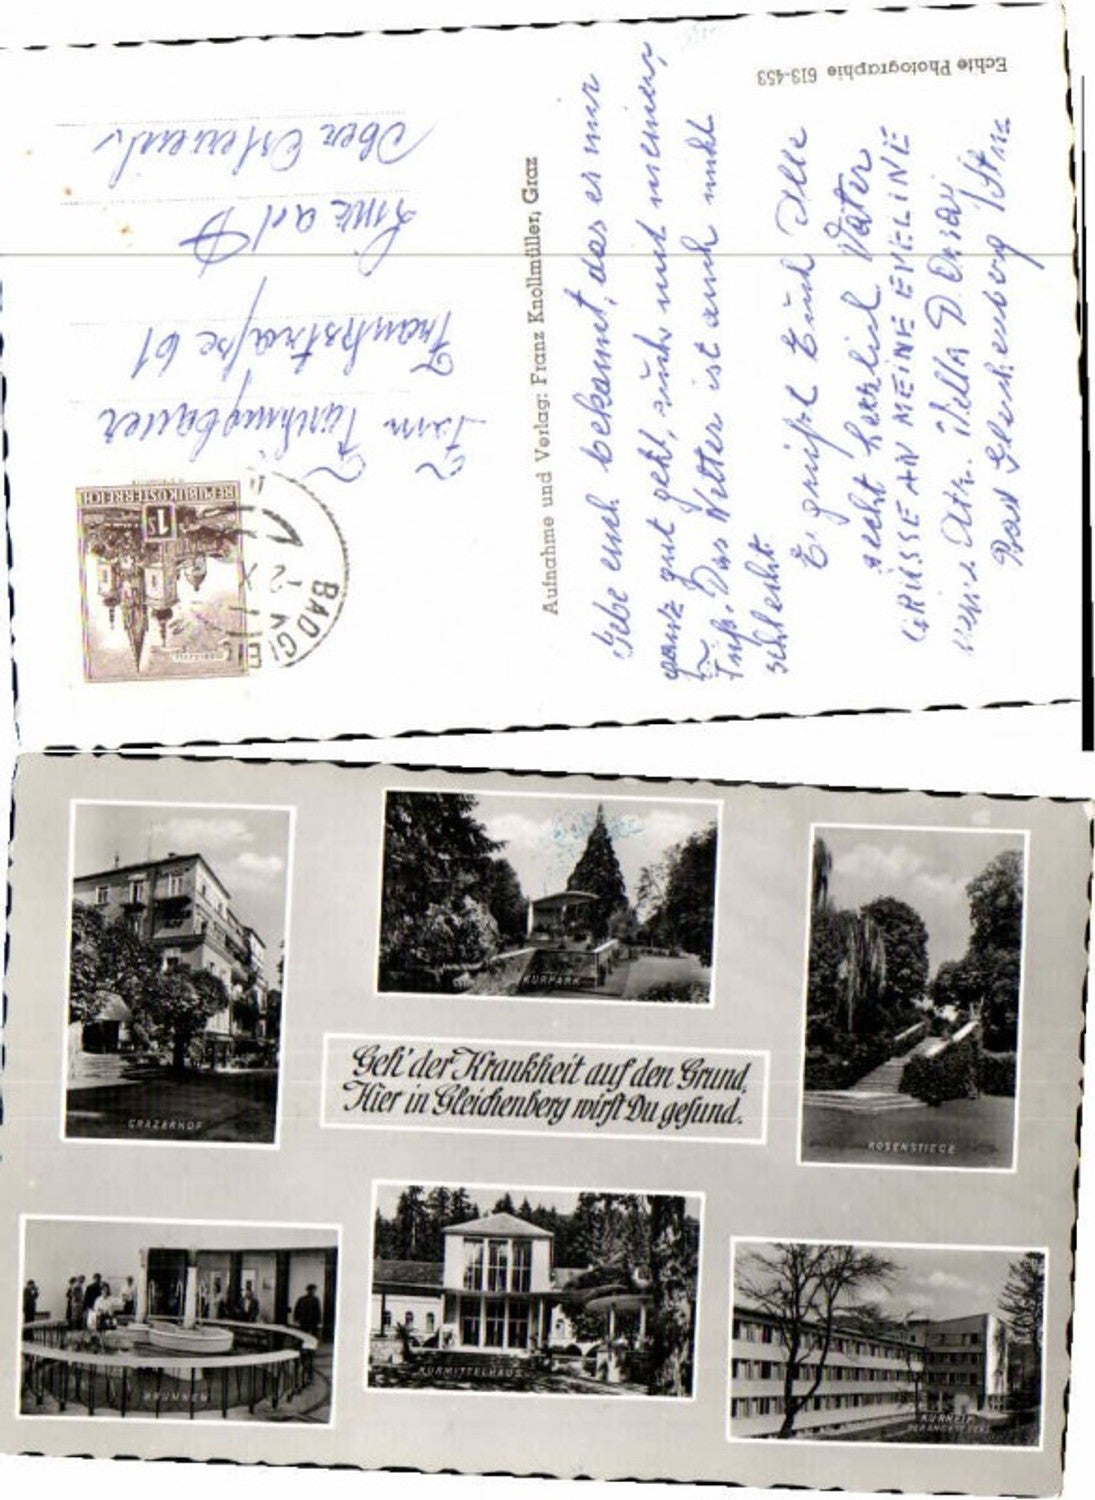 Echte Photographie 613-453
Aufnahme und Verlag: Franz Knollmüller, Graz
REPUBLIK ÖSTERREICH
1S
BAD GLEI
-2.X
Frankstraße 61
Linz a/d D
Ober Österreich
Gebe euch bekannt, das es mir
ganz gut geht, auch mit meinem
Fuß. Das Wetter ist auch nicht
schlecht.
Es grüßt Euch Alle
recht herzlich Vater
GRÜSSE AN MEINE EVELINE
Bad Gleichenberg
GRAZERHOF
KURPARK
ROSENSTIEGE
Geh' der Krankheit auf den Grund,
Hier in Gleichenberg wirst Du gesund.
BRUNNEN
KURMITTELHAUS